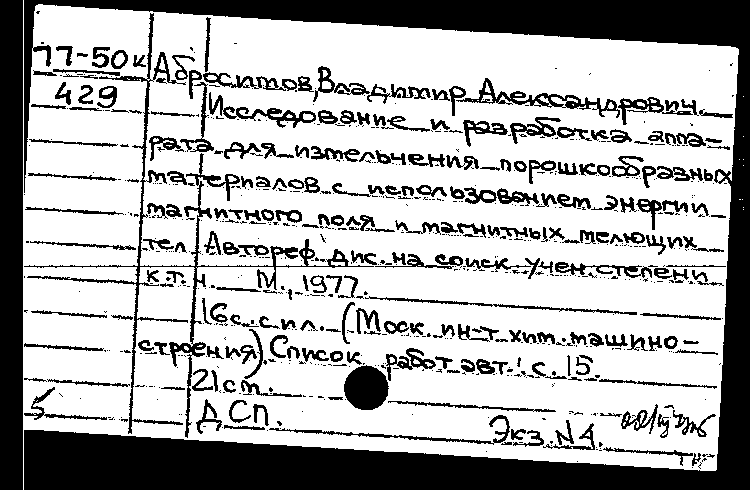 77-50к
429
Абросимов, Владимир Александрович.
Исследование и разработка аппа-
рата для измельчения порошкообразных
материалов с использованием энергии
магнитного поля и магнитных мелющих
тел. Автореф. дис. на соиск. учен. степени
к.т.н. М., 1977.
16с. с ил. (Моск. ин-т хим. машино-
строения). Список работ авт.: с. 15.
21см.
ДСП.
5
Экз. N4.